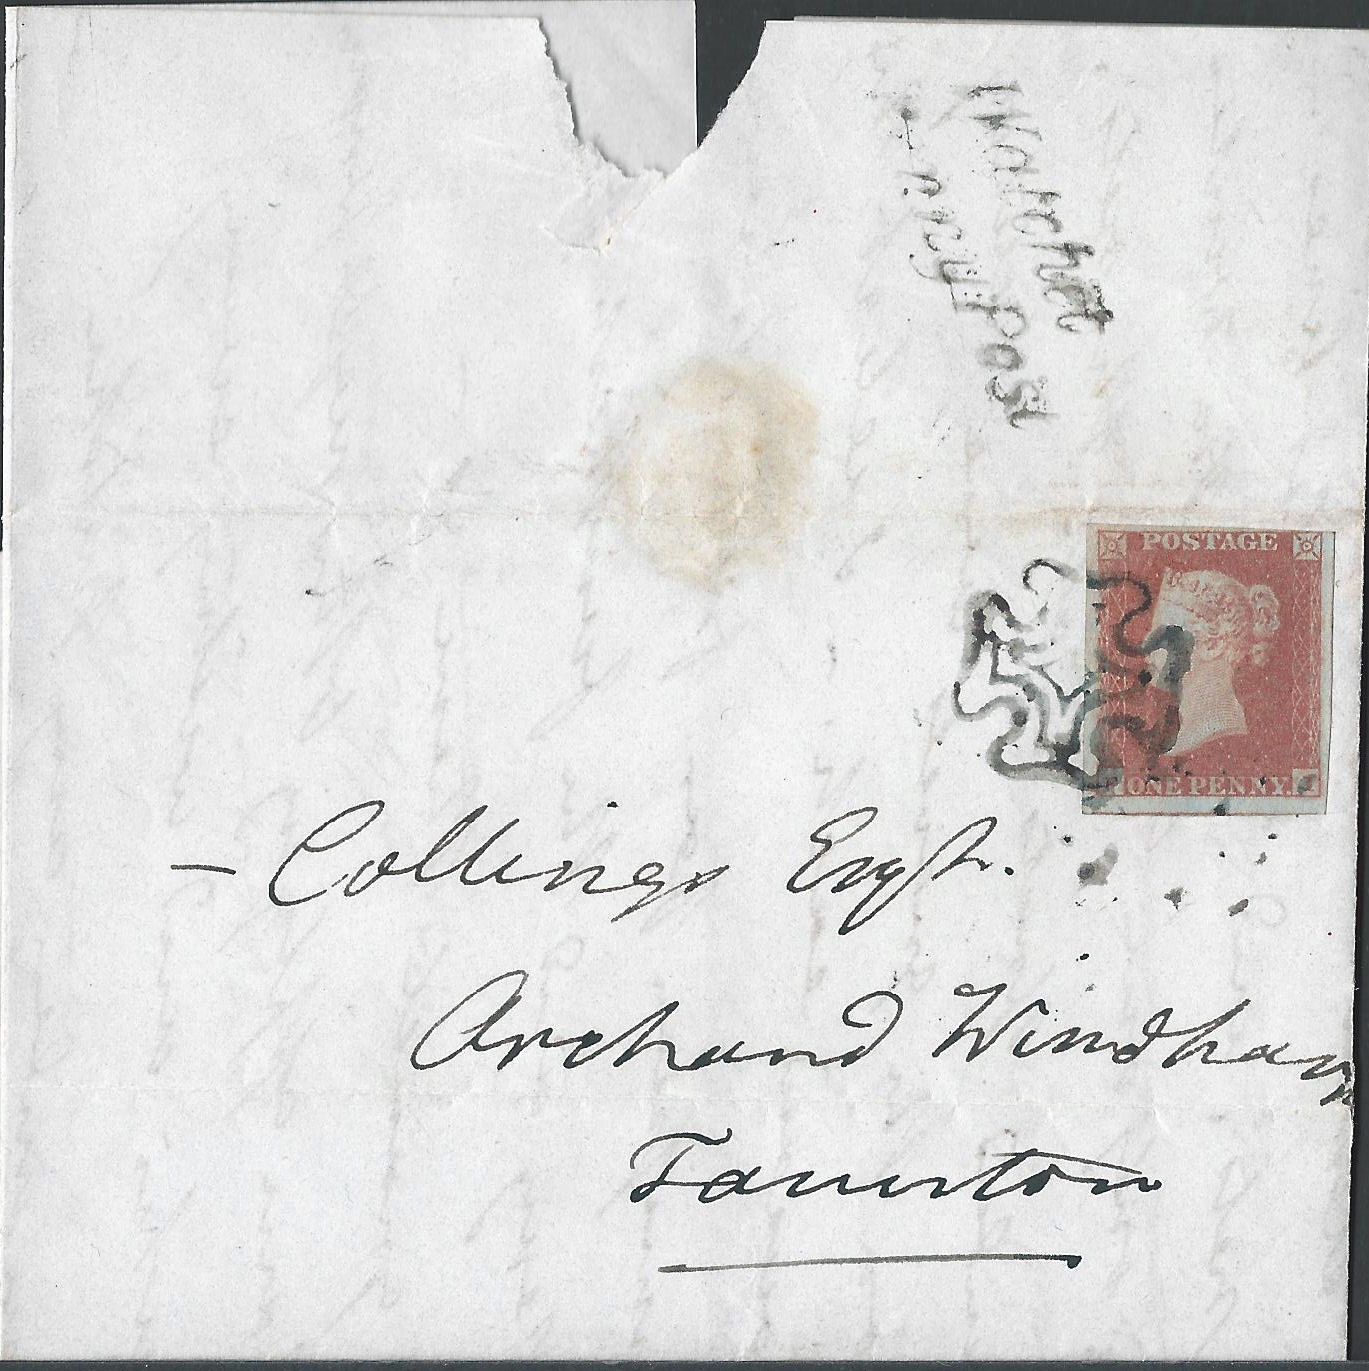 Watchet
Penny Post
POSTAGE
ONE PENNY.
— Collings Esqr.
Archand Windham
Taunton